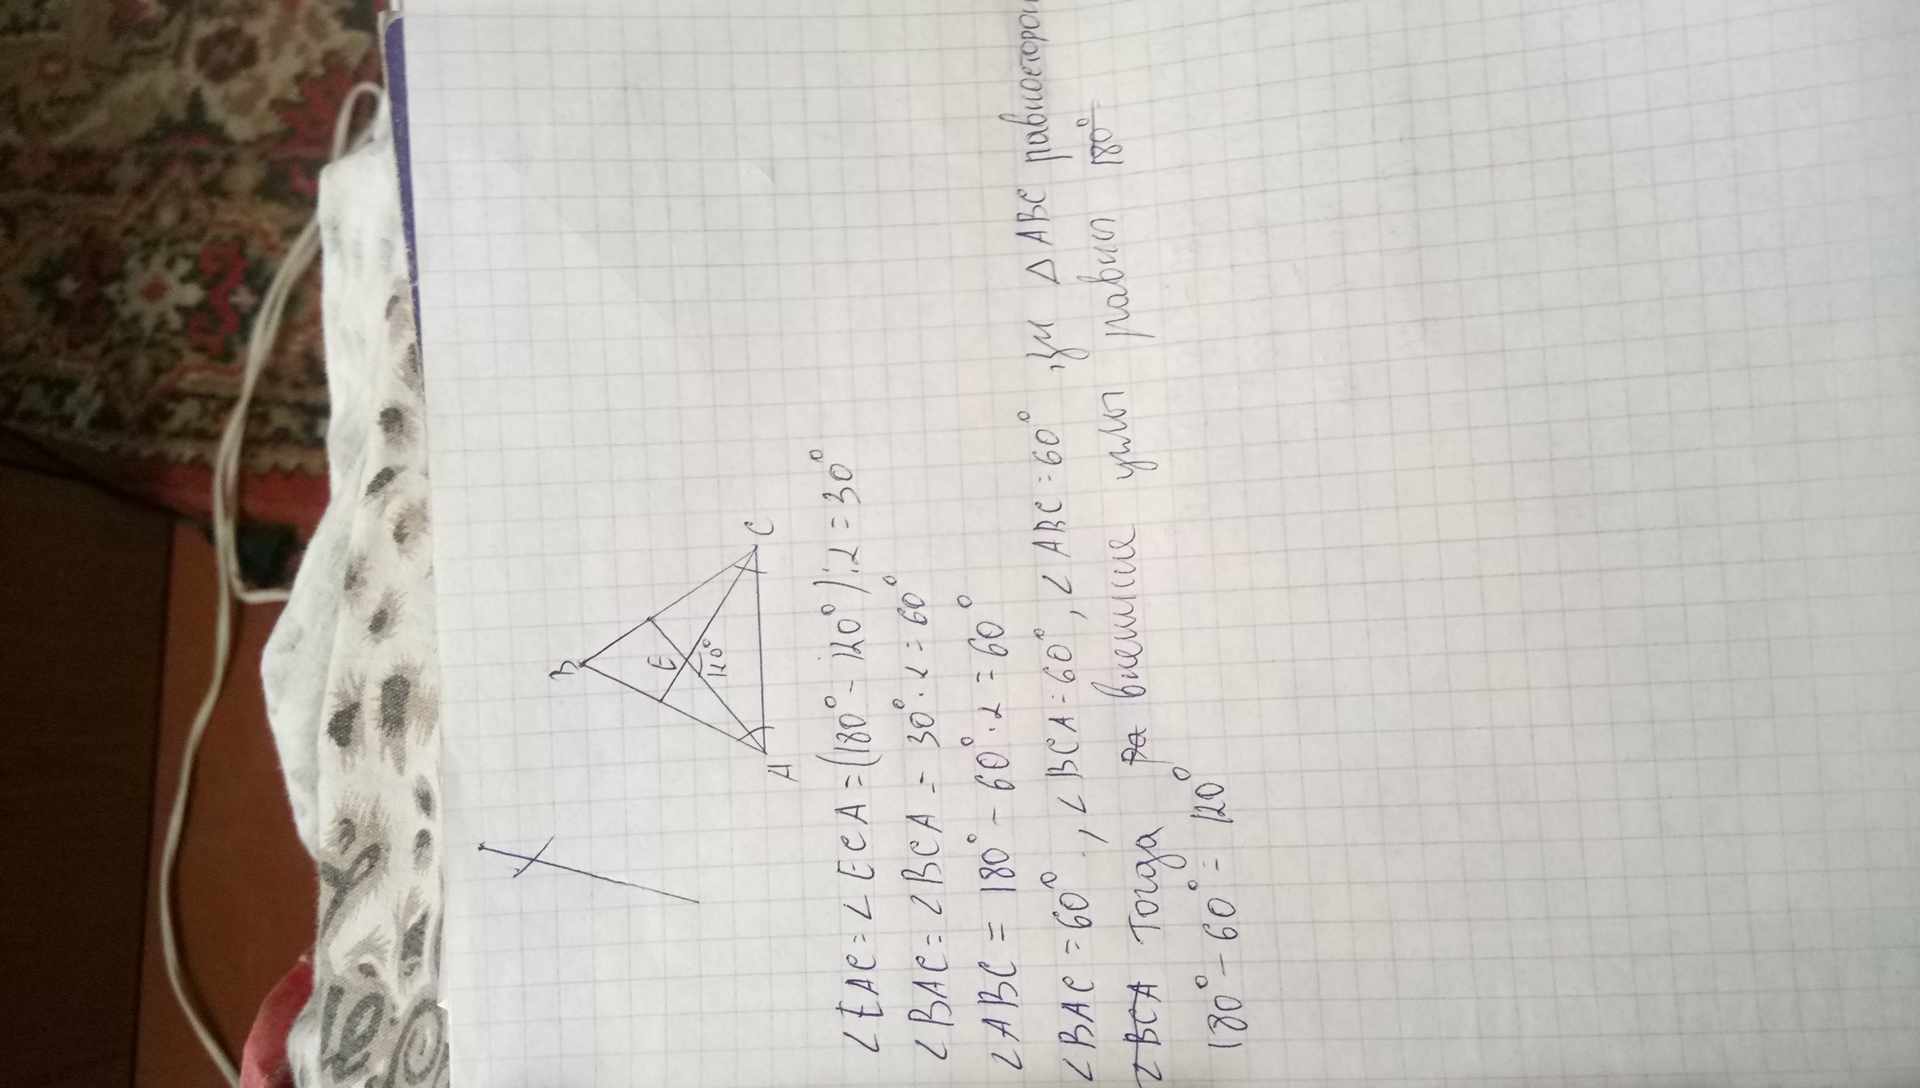 B
E
120°
A
C
∠EAC = ∠ECA = (180° - 120°):2 = 30°
∠BAC = ∠BCA = 30°·2 = 60°
∠ABC = 180° - 60°·2 = 60°
∠BAC = 60°, ∠BCA = 60°, ∠ABC = 60°, △ABC равносторон
∠BCA Тогда внешние углы равны 180° =
180° - 60° = 120°